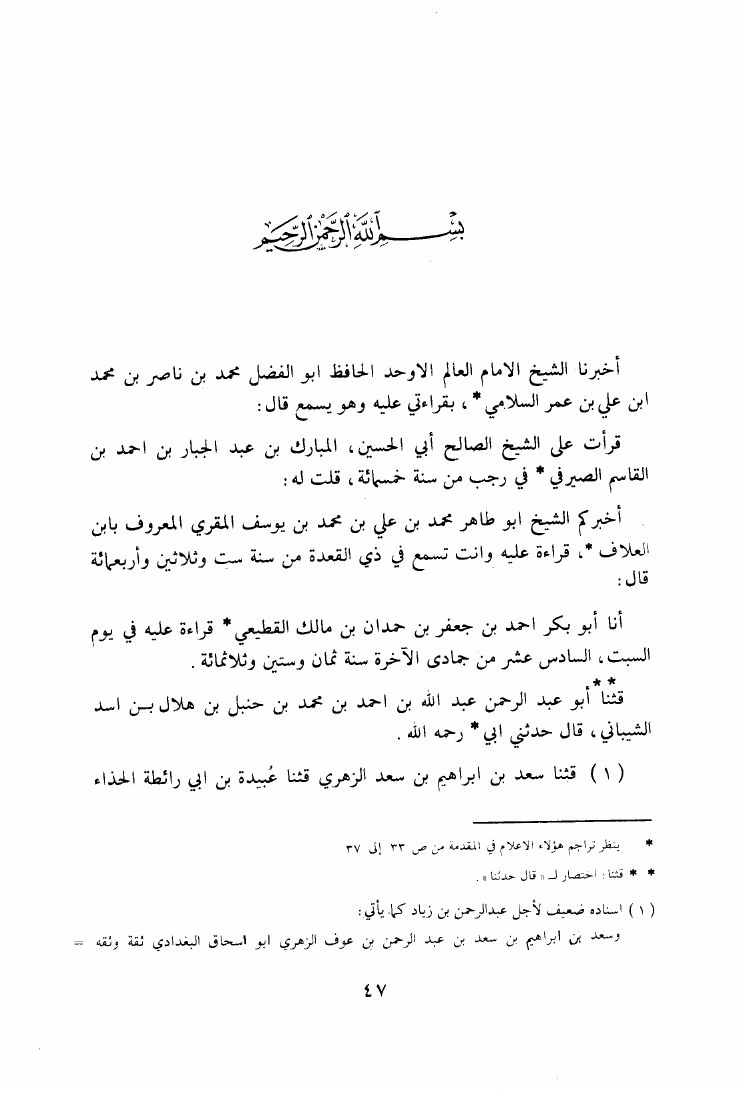 بسم الله الرحمن الرحيم
أخبرنا الشيخ الامام العالم الاوحد الحافظ ابو الفضل محمد بن ناصر بن محمد
ابن علي بن عمر السلامي * ، بقراءتي عليه وهو يسمع قال :
قرأت على الشيخ الصالح أبي الحسين ، المبارك بن عبد الجبار بن احمد بن
القاسم الصيرفي * في رجب من سنة خمسمائة ، قلت له :
أخبركم الشيخ ابو طاهر محمد بن علي بن محمد بن يوسف المقري المعروف بابن
العلاف * ، قراءة عليه وانت تسمع في ذي القعدة من سنة ست وثلاثين وأربعمائة
قال :
أنا أبو بكر احمد بن جعفر بن حمدان بن مالك القطيعي * قراءة عليه في يوم
السبت ، السادس عشر من جمادى الآخرة سنة ثمان وستين وثلاثمائة .
قثنا ** أبو عبد الرحمن عبد الله بن احمد بن محمد بن حنبل بن هلال بن اسد
الشيباني ، قال حدثني ابي * رحمه الله .
( ١ ) قثنا سعد بن ابراهيم بن سعد الزهري قثنا عُبيدة بن ابي رائطة الحذاء
* ينظر تراجم هؤلاء الاعلام في المقدمة من ص ٣٣ إلى ٣٧
* * قثنا : اختصار لـ « قال حدثنا » .
( ١ ) اسناده ضعيف لأجل عبدالرحمن بن زياد كما يأتي :
وسعد بن ابراهيم بن سعد بن عبد الرحمن بن عوف الزهري ابو اسحاق البغدادي ثقة وثقه =
٤٧